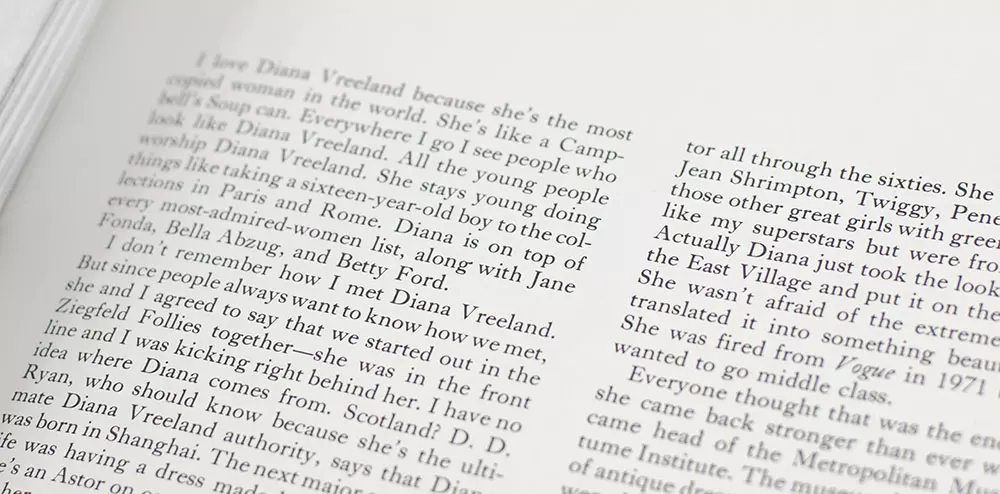 I love Diana Vreeland because she's the most
copied woman in the world. She's like a Camp-
bell's Soup can. Everywhere I go I see people who
look like Diana Vreeland. All the young people
worship Diana Vreeland. She stays young doing
things like taking a sixteen-year-old boy to the col-
lections in Paris and Rome. Diana is on top of
every most-admired-women list, along with Jane
Fonda, Bella Abzug, and Betty Ford.
I don't remember how I met Diana Vreeland.
But since people always want to know how we met,
she and I agreed to say that we started out in the
Ziegfeld Follies together—she was in the front
line and I was kicking right behind her. I have no
idea where Diana comes from. Scotland? D. D.
Ryan, who should know because she's the ulti-
mate Diana Vreeland authority, says that Dian
was born in Shanghai. The next major
ife was having a dress made
e's an Astor on
her
tor all through the sixties. She
Jean Shrimpton, Twiggy, Pene
those other great girls with green
like my superstars but were fro
Actually Diana just took the look
the East Village and put it on the
She wasn't afraid of the extreme
translated it into something beau
She was fired from Vogue in 1971
wanted to go middle class.
Everyone thought that was the en
she came back stronger than ever w
came head of the Metropolitan Mus
tume Institute. The muse
of antique dres
were